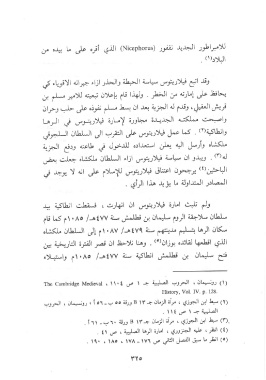 للامبراطور الجديد نقفور (Nicephorus) الذي أقره على ما بيده من
البلاد(١) .
وقد اتبع فيلاريتوس سياسة الحيطة والحذر ازاء جيرانه الاقوياء كي
يحافظ على إمارته من الخطر . ولهذا قام بإعلان تبعيته للامير مسلم بن
قريش العقيلي، وقدم له الجزية بعد ان بسط مسلم نفوذه على حلب وحران
واصبحت مملكته الجديدة مجاورة لإمارة فيلاريتوس في الرها
وانطاكية(٢) . كما عمل فيلاريتوس على التقرب الى السلطان السلجوقي
ملكشاه وأرسل اليه يعلن استعداده للدخول في طاعته ودفع الجزية
له(٣) . ويبدو ان سياسة فيلاريتوس ازاء السلطان ملكشاه جعلت بعض
الباحثين(٤) يرجحون اعتناق فيلاريتوس للإسلام على انه لا يوجد في
المصادر المتداولة ما يؤيد هذا الرأي .
ولم تلبث امارة فيلاريتوس ان انهارت ، فسقطت انطاكية بيد
سلطان سلاجقة الروم سليمان بن قطلمش سنة ٤٧٧هـ/١٠٨٥م كما قام
سكان الرها بتسليم مدينتهم سنة ٤٧٩هـ/١٠٨٦م إلى السلطان ملكشاه
الذي اقطعها لقائده بوزان(٥) . وهنا نلاحظ ان قصر الفترة التاريخية بين
فتح سليمان بن قطلمش انطاكية سنة ٤٧٧هـ/١٠٨٥م واستيلاء
(١) رونسيمان ، الحروب الصليبية جـ ١ ص ١١٠٤ The Cambridge Medieval
History, Vol. IV. p.
(٢) سبط ابن الجوزي ، مرآة الزمان جـ ١٣ B ورقة ٥٥ ب ـ ٥٦ أ ، رونسيمان ، الحروب
الصليبية جـ ١ ص ١١٤ .
(٣) سبط ابن الجوزي ، مرآة الزمان جـ ١٣ B ورقة ٦٠ ب ـ ٦٦ أ .
(٤) انظر ، عليه الجنزوري ، امارة الرها الصليبية ، ص ٤١ .
(٥) انظر ما سبق الفصل الثاني ص ١٧٦ ، ١٧٨ ، ١٨٥ ، ١٩٠ .
٣٢٥